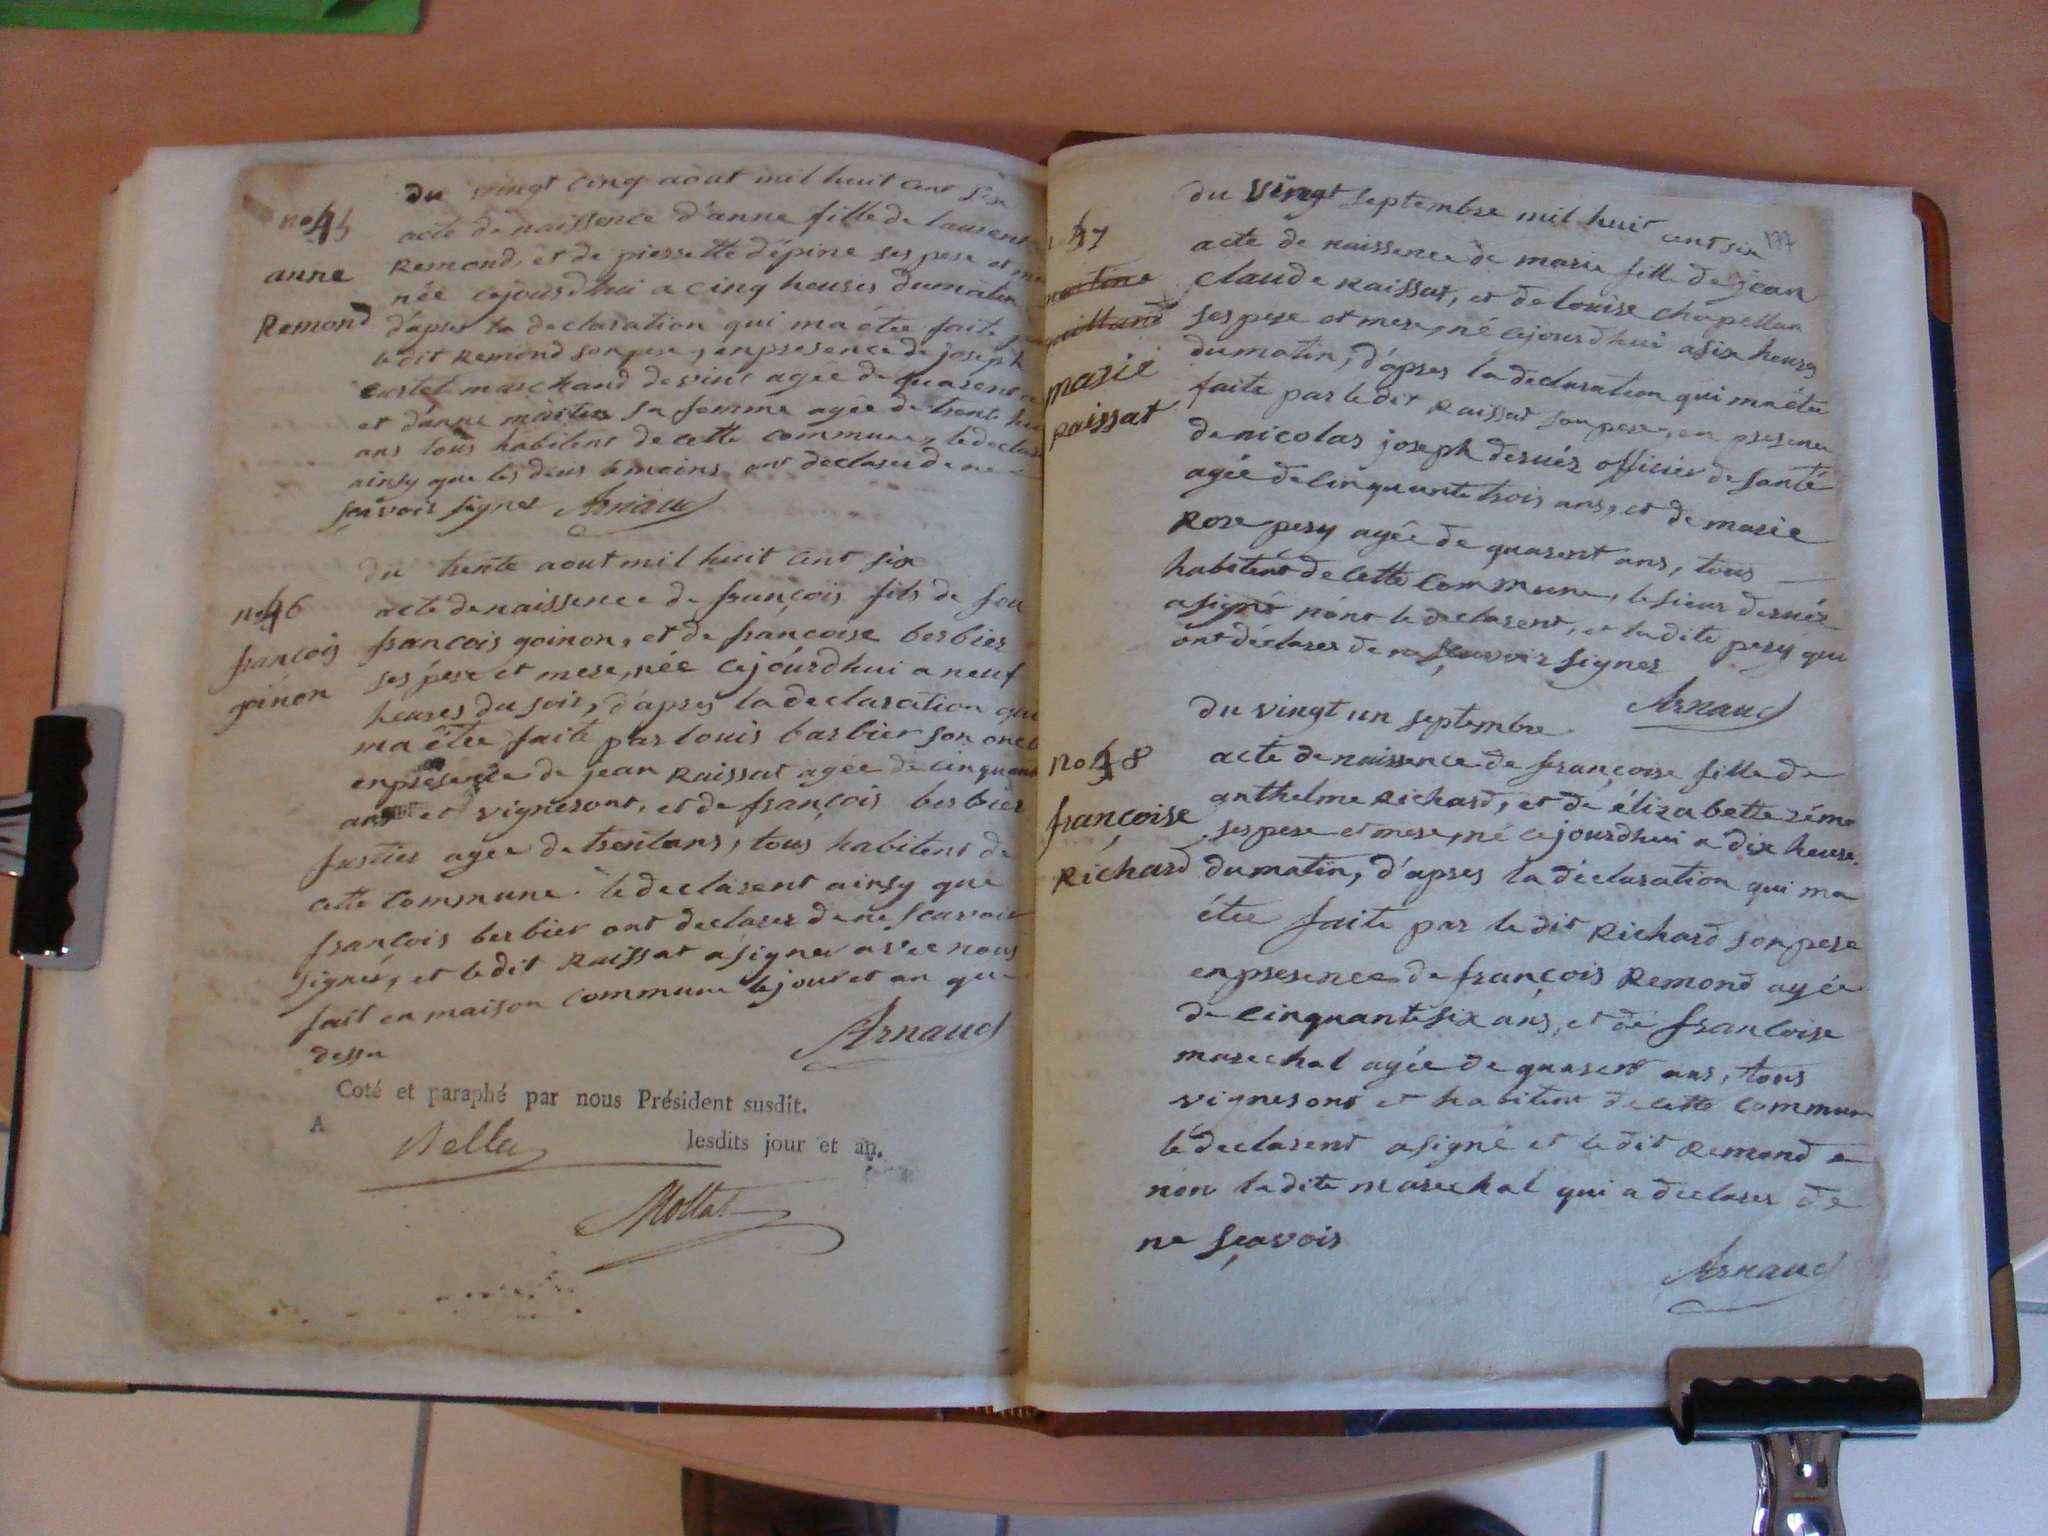 du vingt cinq aout mil huit cent six
no 45
acte de naissence d'anne fille de laurent
anne
Remond, et de pierrette d'épine ses pere et
née cejourdhui a cinq heures dumatin
Remond
d'apres la declaration qui ma étée faite
ledit Remond son pere, enpresence de joseph
marchand devint agée de quarent
et d'anne sa femme agée de trente
ans tous habitent de cette commune, le
ainsy que les deus temoins ont declarer de ne
sçavoir signer Arnaud
du trente aout mil huit cent six
no 46
acte denaissence de françois fils de feu
françois
françois goinon, et de françoise berbier
ses pere et mere, née cejourdhui a neuf
goinon
heures du soir, d'apres la declaration qui
ma étée faite par louis barbier son
enpresence de jean Raissat agée de
ans et vigneront, et de françois berbier
fustier agée de trentans, tous habitens de
cette commune. le declarent ainsy que
françois berbier ont declarer de ne scavoir
signer, et ledit Raissat a signer avec nous
fait en maison commune lejour et an que
dessu
Arnaud
Coté et paraphé par nous Président susdit.
A Belley lesdits jour et an.
Mollat
177
du vingt septembre mil huit cent six
47
acte de naissence de marie fille de jean
claude Raissat, et de louise chapellan
ses pere et mere, né cejourdhui a six heures
marie
dumatin, d'apres la declaration qui ma étée
raissat
faite par ledit Raissat son pere, en presence
de nicolas joseph deruéz officier de santé
agée de cinquante trois ans, et de marie
Rose pery agée de quarent ans, tous
habitent de cette commune, le sieur deruéz
a signé nónt le declarent, et ladite pery qui
ont déclarer de ne sçavoir signer
Arnaud
du vingt un septembre
no 48
acte denaissence de françoise fille de
françoise
anthelme Richard, et de élizabette
ses pere et mere, né cejourdhui a dix heure
Richard
dumatin, d'apres la déclaration qui ma
étée faite par ledit Richard son pere
enpresence de françois Remond agée
de cinquante six ans, et de francoise
marechal agée de quarent ans, tous
vigneront et habitent de cette commune
le declarent a signé et le dit Remond
non ladite marechal qui a declarer de
ne sçavoir
Arnaud